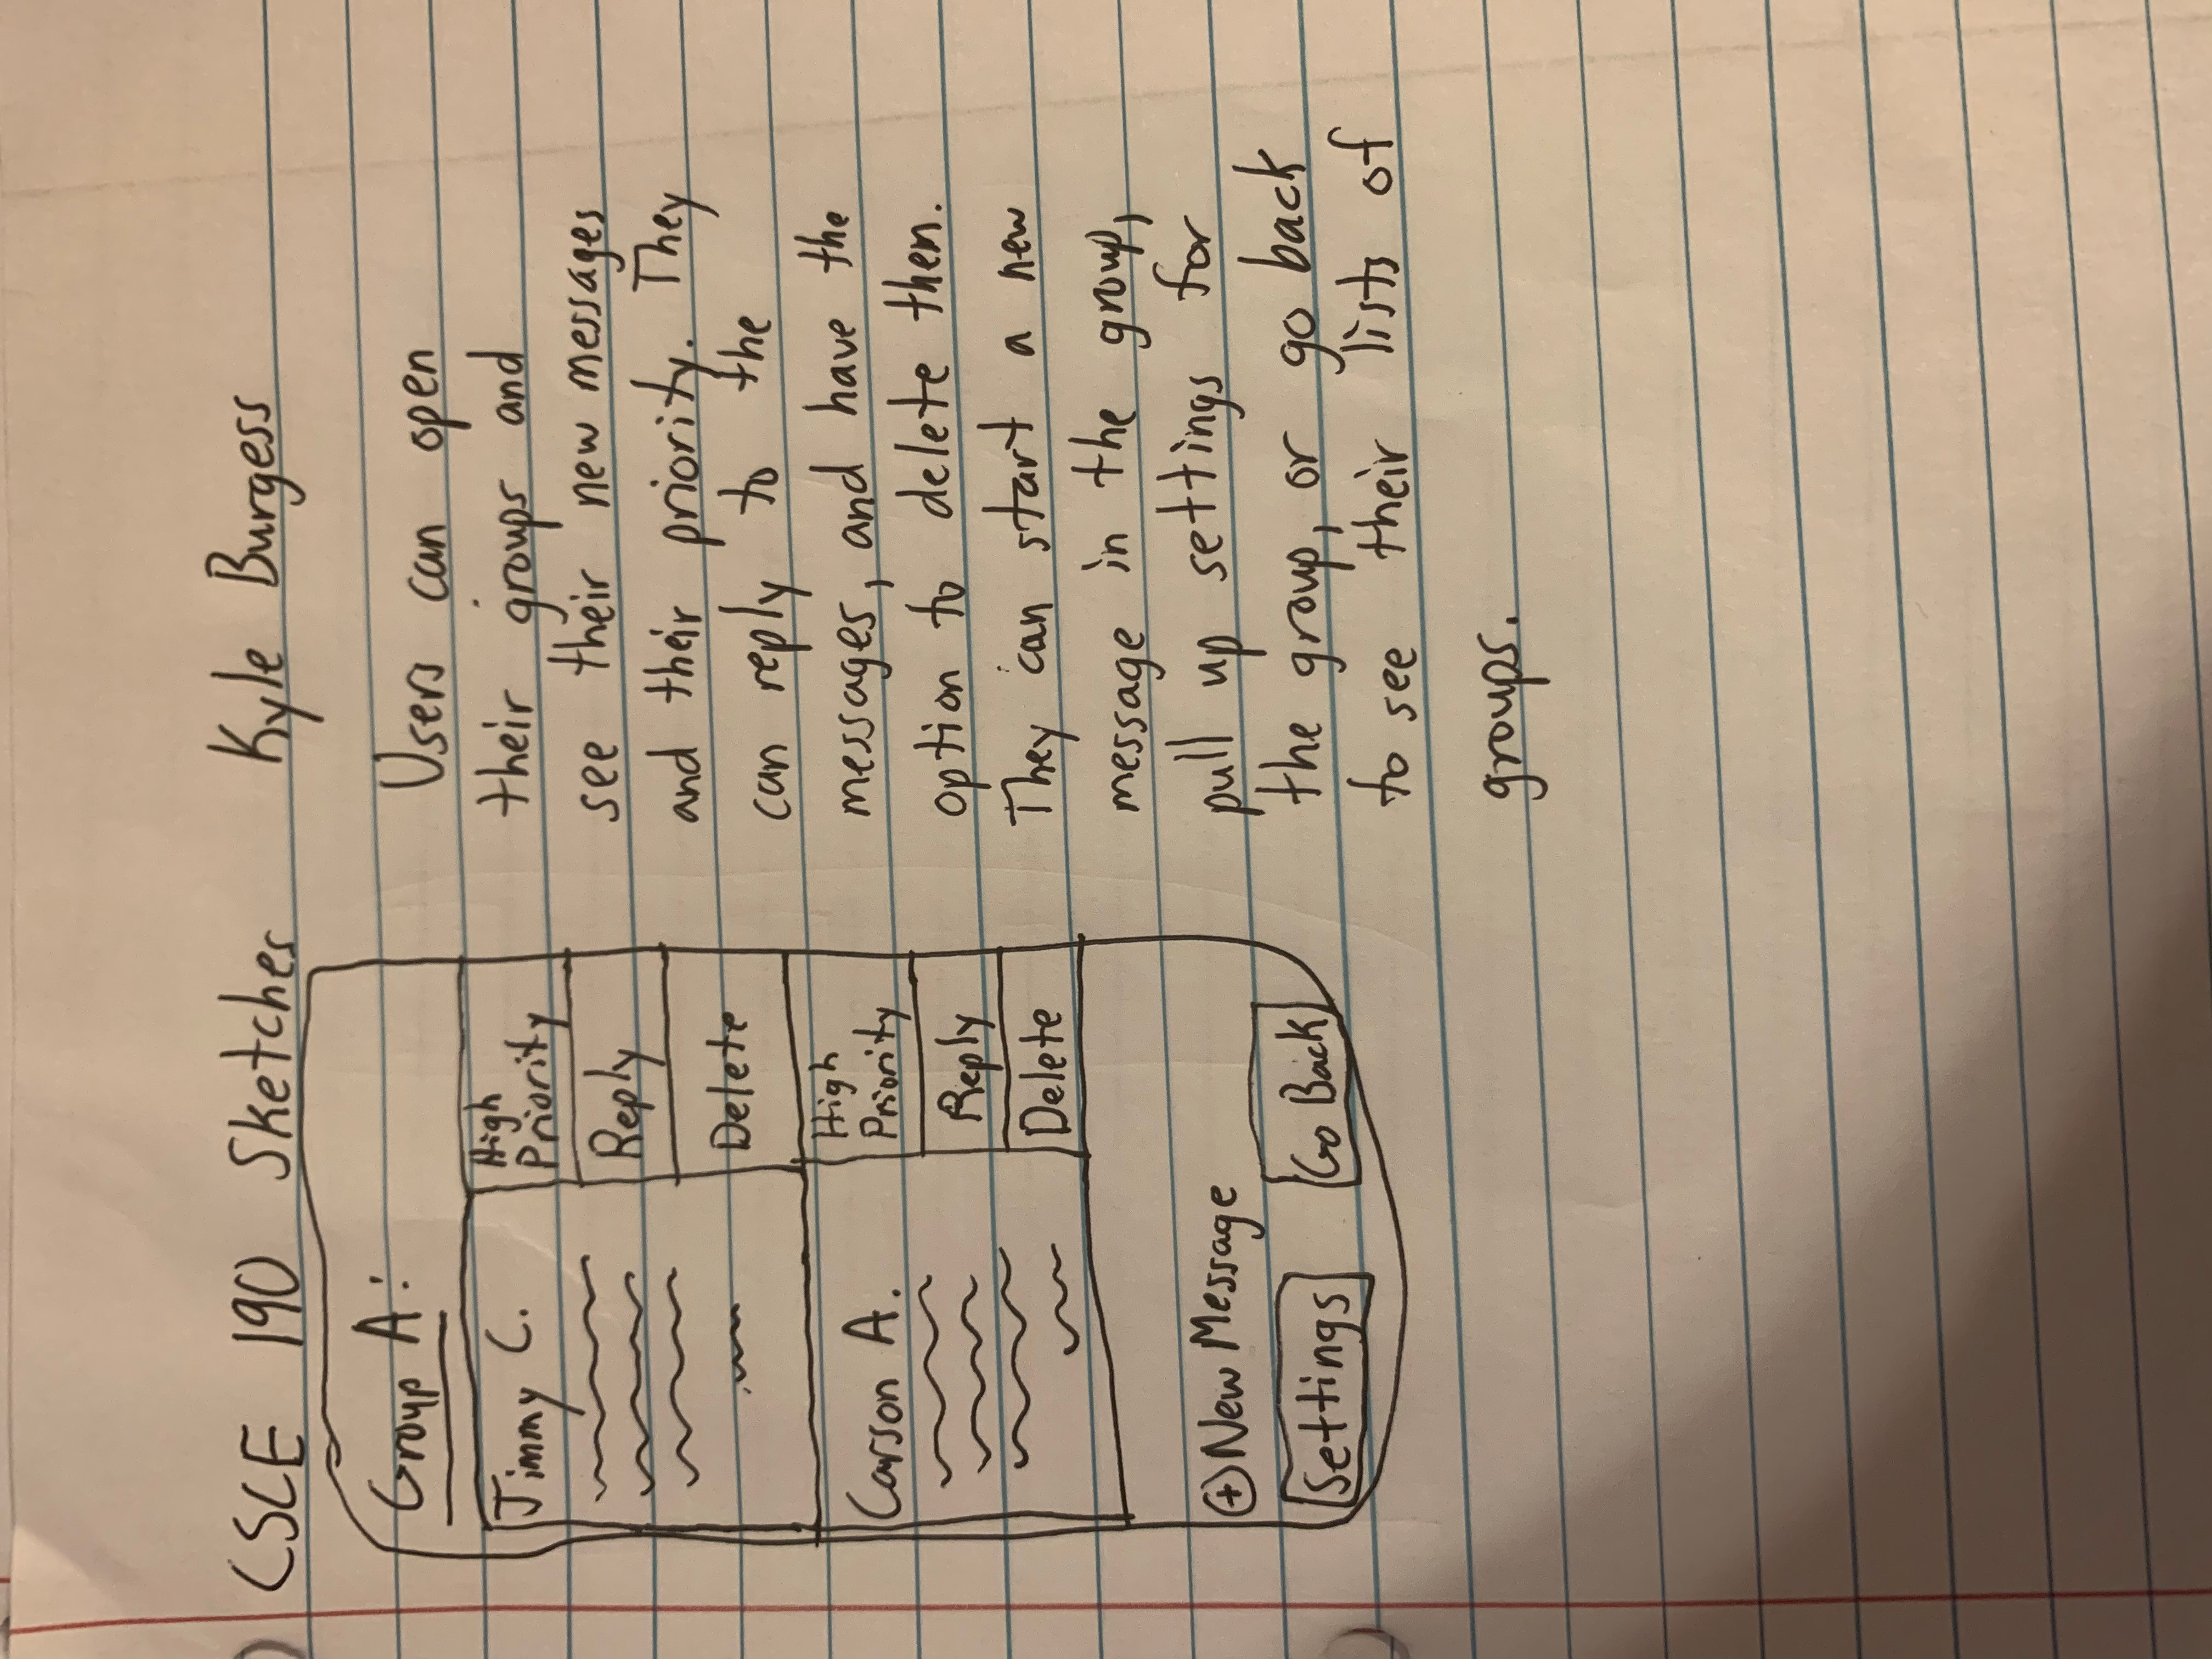 CSCE 190 Sketches Kyle Burgess
Group A:
Jimmy C.
High
Priority
Reply
Delete
Carson A.
High
Priority
Reply
Delete
+ New Message
Settings
Go Back
Users can open
their groups and
see their new messages
and their priority. They
can reply to the
messages, and have the
option to delete them.
They can start a new
message in the group,
pull up settings for
the group, or go back
to see their lists of
groups.